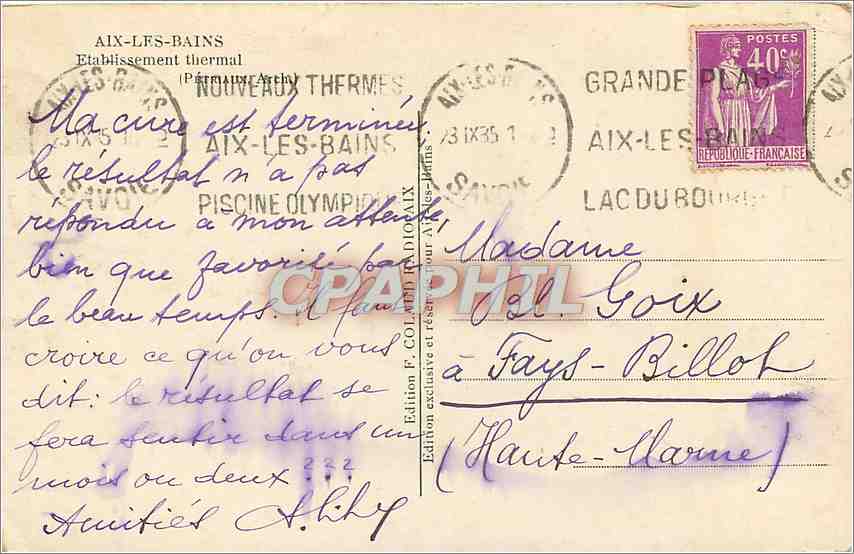 AIX-LES-BAINS
Etablissement thermal
(Pétriaux, Arch.)
NOUVEAUX THERMES
AIX-LES-BAINS
PISCINE OLYMPI
AIX-LES-BAINS
23 IX 35
SAVOIE
GRANDE PLAGE
AIX-LES-BAINS
LAC DU BOURG
POSTES
40c
REPUBLIQUE-FRANÇAISE
Ma cure est terminée.
le résultat n'a pas
répondu à mon attente,
bien que favorisé par
le beau temps. Il faut
croire ce qu'on vous
dit: le résultat se
fera sentir dans un
mois ou deux ???
Amitiés
Edition F. COLAUD RADIO AIX
Edition exclusive et réservée pour Aix-les-Bains
Madame
Bl. Goix
à Fays-Billot
(Haute-Marne)
CPAPHIL